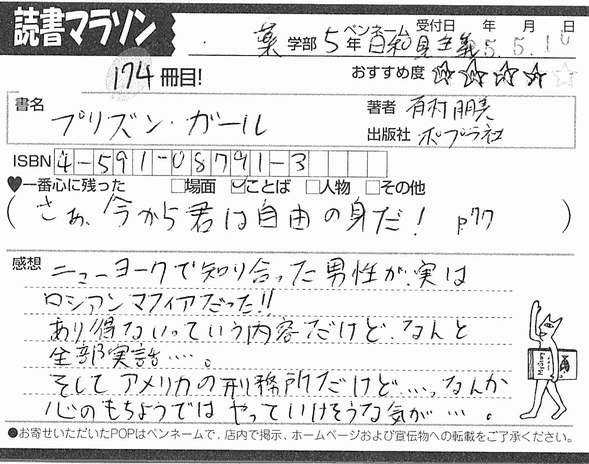 読書マラソン
薬 学部 5年 ペンネーム 日和見主義 受付日 年 月 日
5. 5. 10
174冊目! おすすめ度 ☆☆☆☆☆
書名 プリズン・ガール
著者 有村朋美
出版社 ポプラ社
ISBN 4-591-08791-3
♥一番心に残った □場面 ☑ことば □人物 □その他
(さぁ、今から君は自由の身だ! p77)
感想 ニューヨークで知り合った男性が、実は
ロシアンマフィアだった!!
あり得ないっていう内容だけど、なんと
全部実話‥‥。
そして アメリカの刑務所だけど‥‥、なんか
心のもちようでは やっていけそうな気が‥‥。
●お寄せいただいたPOPはペンネームで、店内で掲示、ホームページおよび宣伝物への転載をご了承ください。